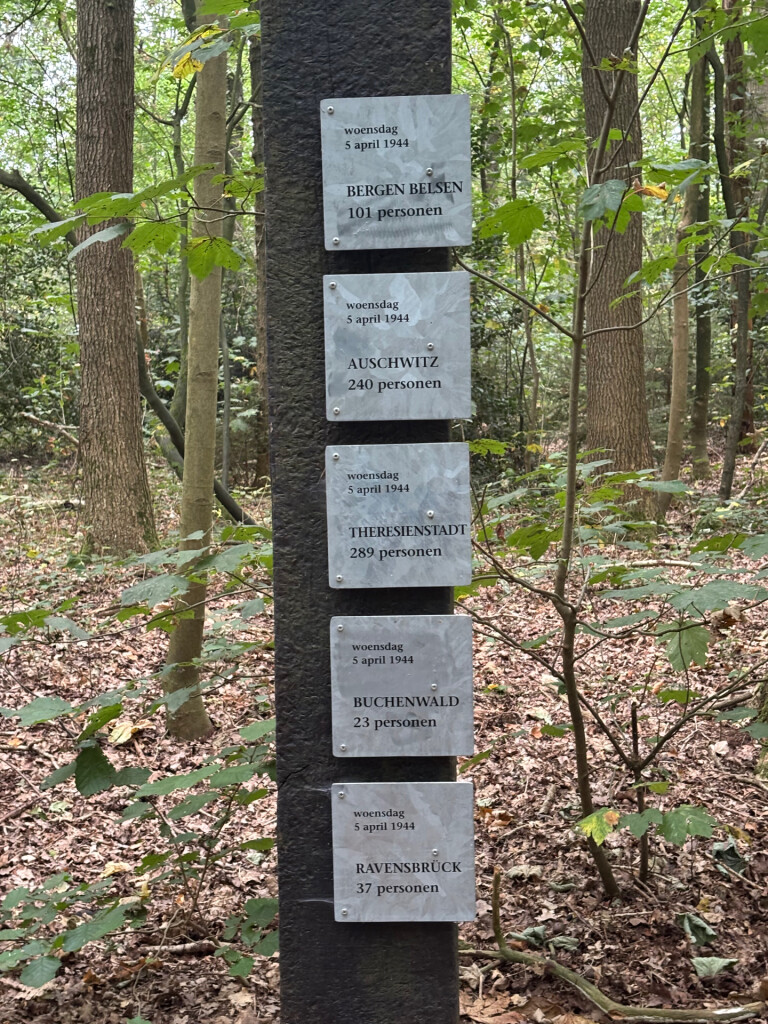 woensdag
5 april 1944
BERGEN BELSEN
101 personen
woensdag
5 april 1944
AUSCHWITZ
240 personen
woensdag
5 april 1944
THERESIENSTADT
289 personen
woensdag
5 april 1944
BUCHENWALD
23 personen
woensdag
5 april 1944
RAVENSBRÜCK
37 personen